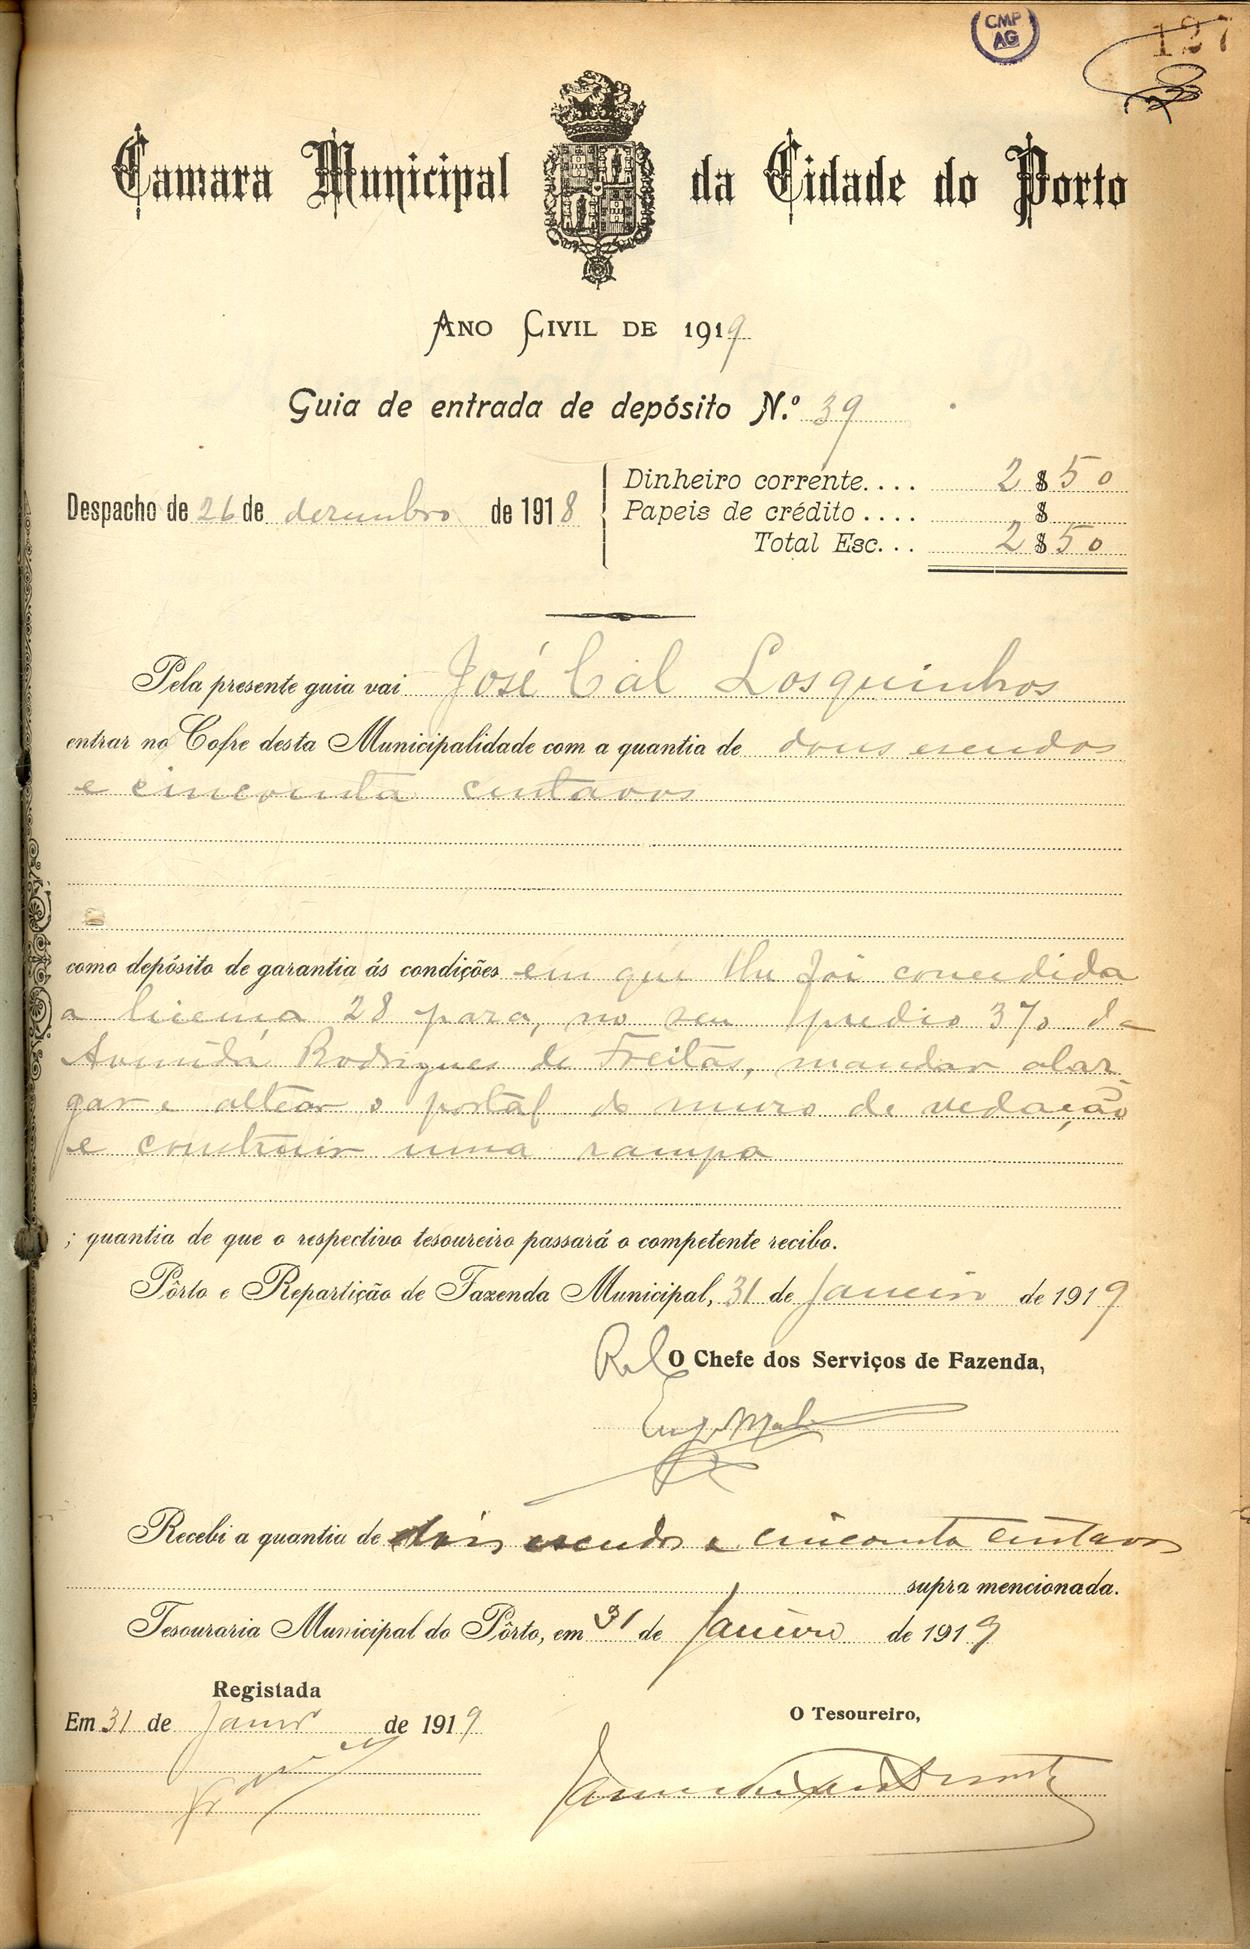 CMP
AG
127
Camara Municipal da Cidade do Porto
Ano Civil de 1919
Guia de entrada de depósito N.º 39
Despacho de 26 de dezembro de 1918
Dinheiro corrente.... 2$50
Papeis de crédito.... $
Total Esc... 2$50
Pela presente guia vai José Cal Losquinhos
entrar no Cofre desta Municipalidade com a quantia de dous escudos
e cincoenta centavos
como depósito de garantia ás condições em que lhe foi concedida
a licença 28 para, no seu predio 370 da
Avenida Rodrigues de Freitas, mandar alar-
gar e altear o portal do muro de vedação
e construir uma rampa
; quantia de que o respectivo tesoureiro passará o competente recibo.
Pôrto e Repartição de Fazenda Municipal, 31 de Janeiro de 1919
O Chefe dos Serviços de Fazenda,
Recebi a quantia de dois escudos e cincoenta centavos
supra mencionada.
Tesouraria Municipal do Pôrto, em 31 de Janeiro de 1919
Registada
Em 31 de Janro de 1919
O Tesoureiro,